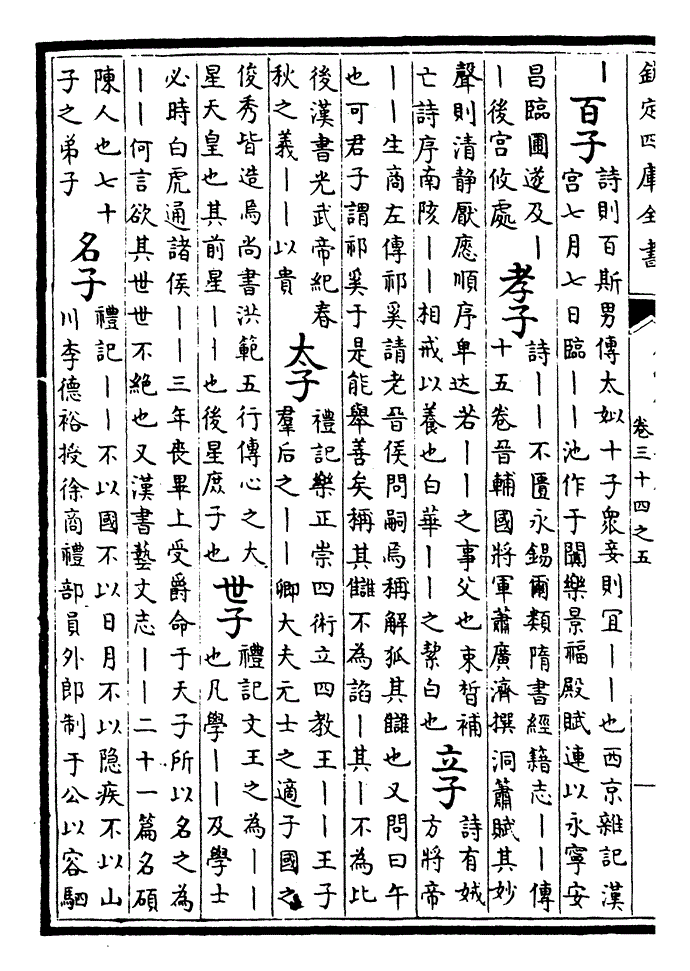 欽定四庫全書
卷三十四之五
丨百子
詩則百斯男傳太姒十子衆妾則宜丨丨也西京雜記漢
宫七月七日臨丨丨池作于闐樂景福殿賦連以永寧安
昌臨圃遂及丨
丨後宫攸處
孝子
詩丨丨不匱永錫爾類隋書經籍志丨丨傳
十五卷晉輔國將軍蕭廣濟撰洞簫賦其妙
聲則清静厭應順序卑达若丨丨之事父也束皙補
亡詩序南陔丨丨相戒以養也白華丨丨之絜白也
立子
詩有娀
方將帝
丨丨生商左傳祁奚請老晉侯問嗣焉稱解狐其讎也又問曰午
也可君子謂祁奚于是能舉善矣稱其讎不為諂丨其丨不為比
後漢書光武帝紀春
秋之義丨丨以貴
太子
禮記樂正崇四術立四教王丨丨王子
羣后之丨丨卿大夫元士之適子國之
俊秀皆造焉尚書洪範五行傳心之大
星天皇也其前星丨丨也後星庶子也
世子
禮記文王之為丨丨
也凡學丨丨及學士
必時白虎通諸侯丨丨三年喪畢上受爵命于天子所以名之為
丨丨何言欲其世世不絶也又漢書藝文志丨丨二十一篇名碩
陳人也七十
子之弟子
名子
禮記丨丨不以國不以日月不以隱疾不以山
川李德裕授徐商禮部員外郎制于公以容駟